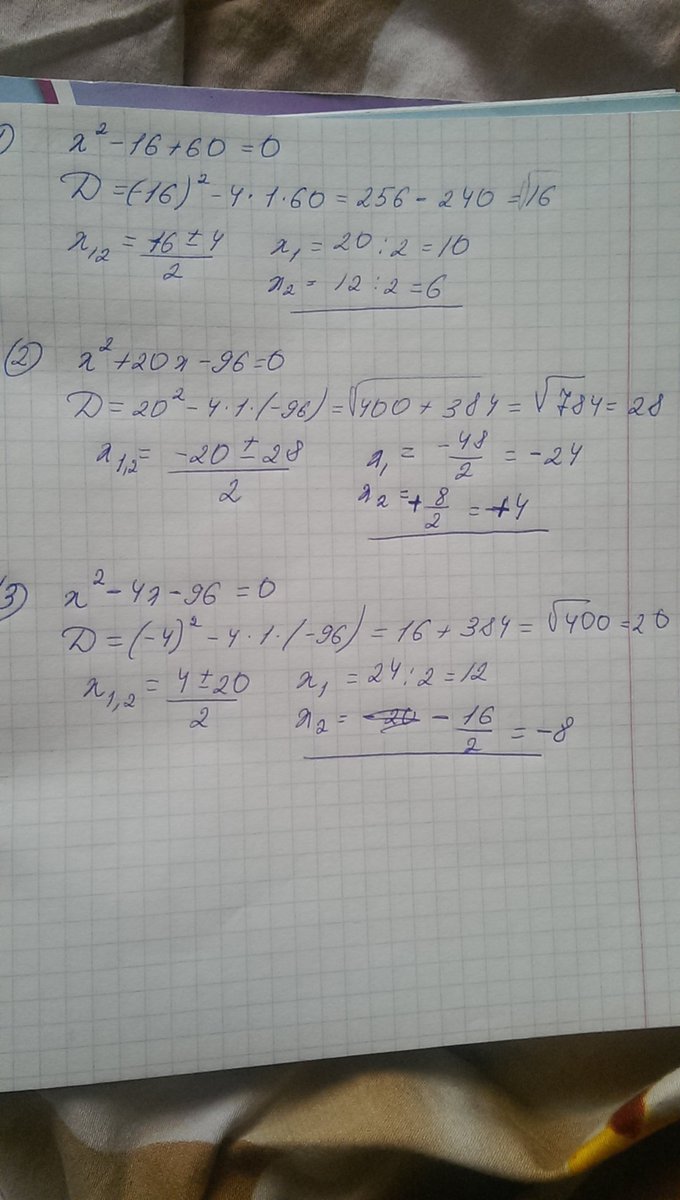 1) x² - 16 + 60 = 0
D = (-16)² - 4 · 1 · 60 = 256 - 240 = √16
x₁,₂ = (16 ± 4)/2 x₁ = 20 : 2 = 10
x₂ = 12 : 2 = 6
(2) x² + 20x - 96 = 0
D = 20² - 4 · 1 · (-96) = √400 + 384 = √784 = 28
x₁,₂ = (-20 ± 28)/2 x₁ = -48/2 = -24
x₂ = +8/2 = +4
(3) x² - 4x - 96 = 0
D = (-4)² - 4 · 1 · (-96) = 16 + 384 = √400 = 20
x₁,₂ = (4 ± 20)/2 x₁ = 24 : 2 = 12
x₂ = -16/2 = -8